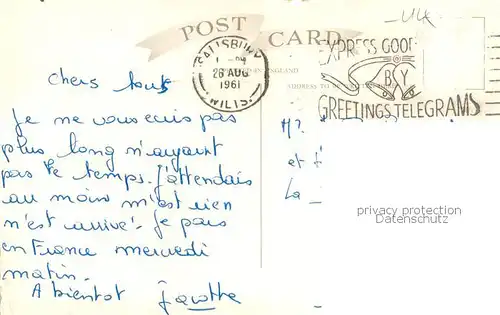 POST CARD
SALISBURY
26 AUG
1961
WILTS.
EXPRESS GOOD
BY
GREETINGS TELEGRAMS
ENGLAND
ADDRESS TO BE
UK
Chers tous
Je ne vous ecris pas
plus long n'ayant
pas le temps. J'attendais
au moins m'est rien
n'est arrivé. Je pars
en France mercredi
matin.
A bientot
M?
et
La
privacy protection
VDM